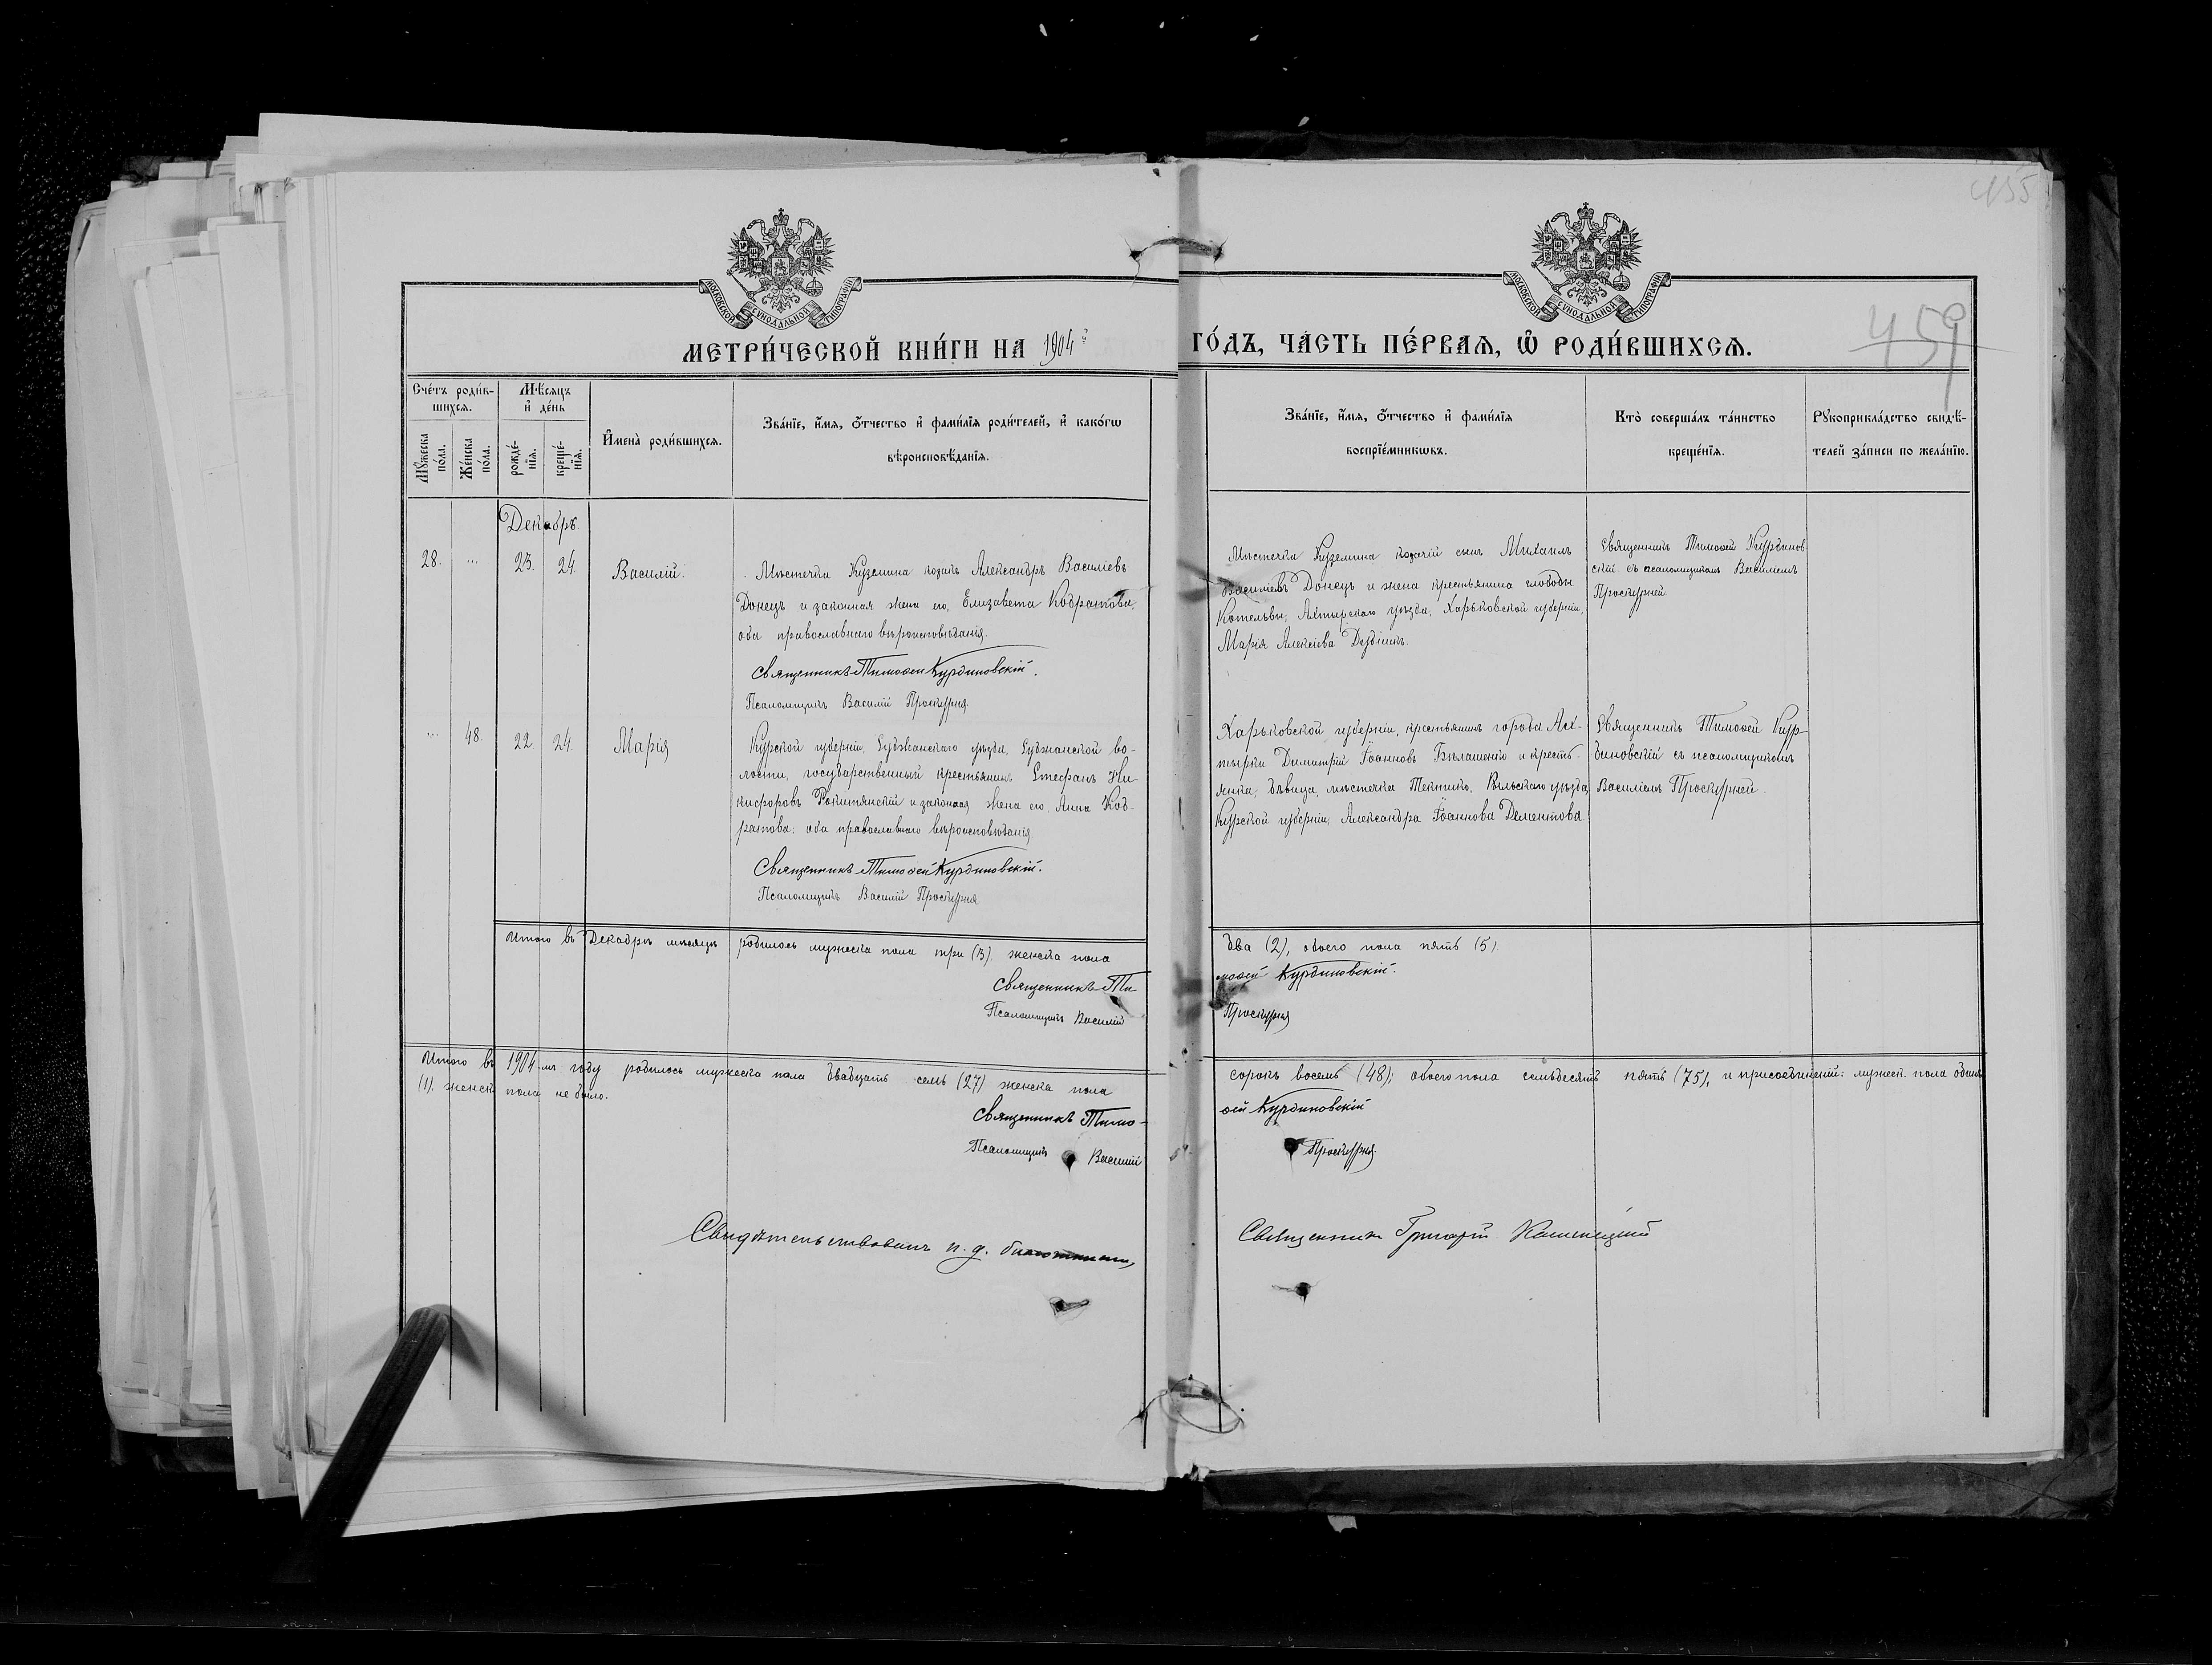 455
459
МОСКОВСКОЙ СУНОДАЛЬНОЙ ТИПОГРАФІИ
МОСКОВСКОЙ СУНОДАЛЬНОЙ ТИПОГРАФІИ
МЕТРИ́ЧЕСКОЙ КНИ́ГИ НА 1904 ГО́ДЪ, ЧА́СТЬ ПЕ́РВАѦ, Ѡ РОДИ́ВШИХСѦ.
Сче́тъ роди́в-
шихсѧ.
Мꙋ́жеска по́ла.
Же́нска по́ла.
Мѣ́сѧцъ и҆ де́нь
рожде́-
нїѧ.
креще́-
нїѧ.
И҆мена̀ роди́вшихсѧ.
Зва́нїе, и҆́мѧ, ѻ҆́тчество и҆ фами́лїѧ роди́телей, и҆ како́гѡ
вѣроисповѣ́данїѧ.
Зва́нїе, и҆́мѧ, ѻ҆́тчество и҆ фами́лїѧ
воспрїе́мникѡвъ.
Кто̀ соверша́лъ та́инство
креще́нїѧ.
Рꙋкоприкла́дство свидѣ́-
телей за́писи по жела́нїю.
Декабрь.
28. ... 23. 24. Василій.
Мѣстечка Куземина козакъ Александръ Василіевъ
Донецъ и законная жена его, Елизавета Кодратова,
оба православнаго вѣроисповѣданія.
Священникъ Тимоѳей Курдиновскій.
Псаломщикъ Василій Проскурня.
Мѣстечка Куземина козачій сынъ Михаилъ
Василіевъ Донецъ и жена крестьянина слободы
Котельвы, Ахтырскаго уѣзда, Харьковской губерніи,
Марія Алексіева
Священникъ Тимоѳей Курдинов-
скій съ псаломщикомъ Василіемъ
Проскурней
... 48. 22. 24. Марія
Курской губерніи, Суджанскаго уѣзда, Суджанской во-
лости, государственный крестьянинъ Стефанъ Ни-
кифоровъ Рокитянскій и законная жена его, Анна Код-
ратова, оба православнаго вѣроисповѣданія
Священникъ Тимоѳей Курдиновскій.
Псаломщикъ Василій Проскурня
Харьковской губерніи, крестьянинъ города Ах-
тырки Димитрій Іоанновъ Билашенко и кресть-
янка, дѣвица, мѣстечка Теткино, Рыльскаго уѣзда
Курской губерніи, Александра Іоаннова Дементова
Священникъ Тимоѳей Кур-
диновскій съ псаломщикомъ
Василіемъ Проскурней.
Итого въ Декабрѣ мѣсяцѣ родилось мужеска пола три (3), женска пола два (2), обоего пола пять (5).
Священникъ Тимоѳей Курдиновскій.
Псаломщикъ Василій Проскурня
Итого въ 1904-мъ году родилось мужеска пола двадцать семь (27) женска пола сорокъ восемь (48); обоего пола семьдесятъ пять (75), и присоединеній: мужеск. пола одинъ
(1), женск. пола не было.
Священникъ Тимоѳей Курдиновскій
Псаломщикъ Василій Проскурня.
Свидѣтельствовалъ и. д. Священникъ Григорій